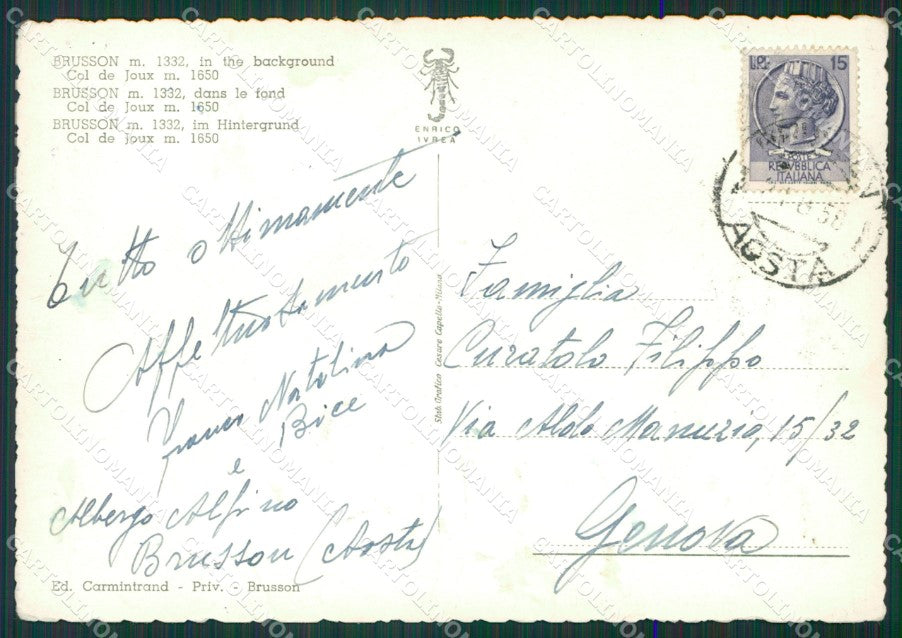 BRUSSON m. 1332, in the background
Col de Joux m. 1650
BRUSSON m. 1332, dans le fond
Col de Joux m. 1650
BRUSSON m. 1332, im Hintergrund
Col de Joux m. 1650
ENRICO
IVREA
L. 15
POSTE
REPVBBLICA
ITALIANA
58
AOSTA
Tutto ottimamente
Affettuosamente
Franco Natalina
Bice
e
Albergo Alpino
Brusson (Aosta)
Ed. Carmintrand - Priv. - Brusson
Stab. Grafico Cesare Capello - Milano
Famiglia
Curatolo Filippo
Via Aldo Manuzio, 15/32
Genova
CARTOLINOMANIA